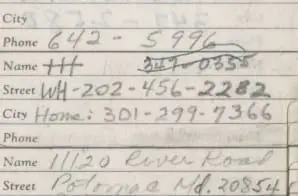 City
Phone 642 - 5996
Name HH 347-0355
Street WH-202-456-2282
City Home: 301-299-7366
Phone
Name 11120 River Road
Street Potomac Md. 20854